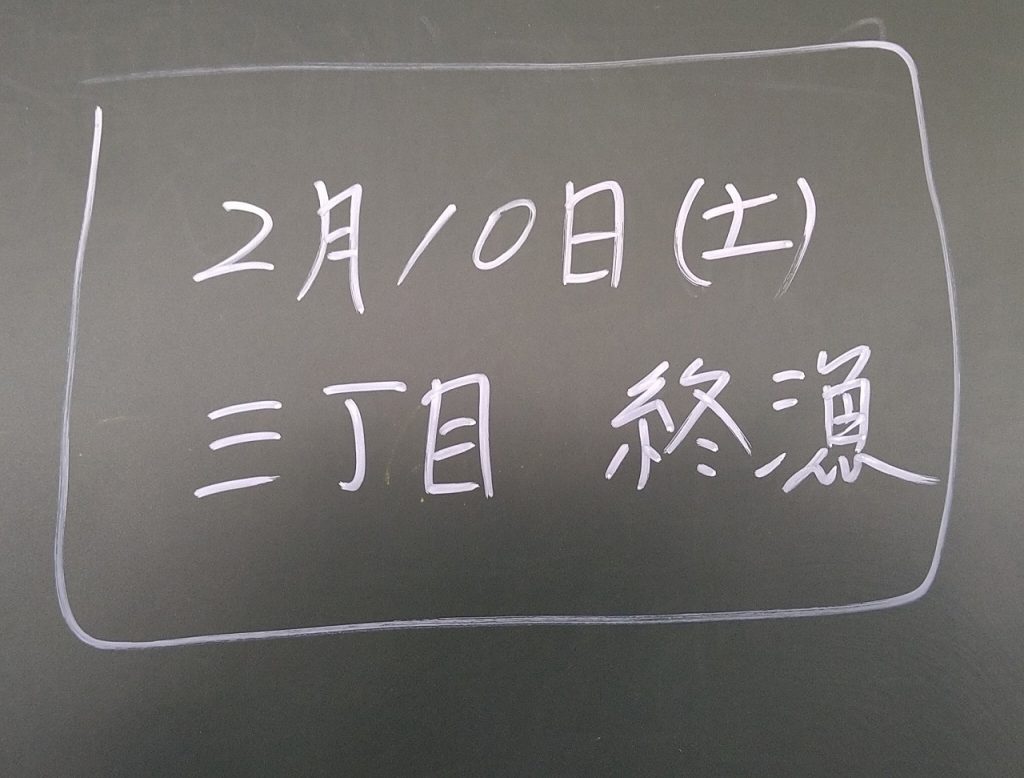 2月10日(土)
三丁目 終漁